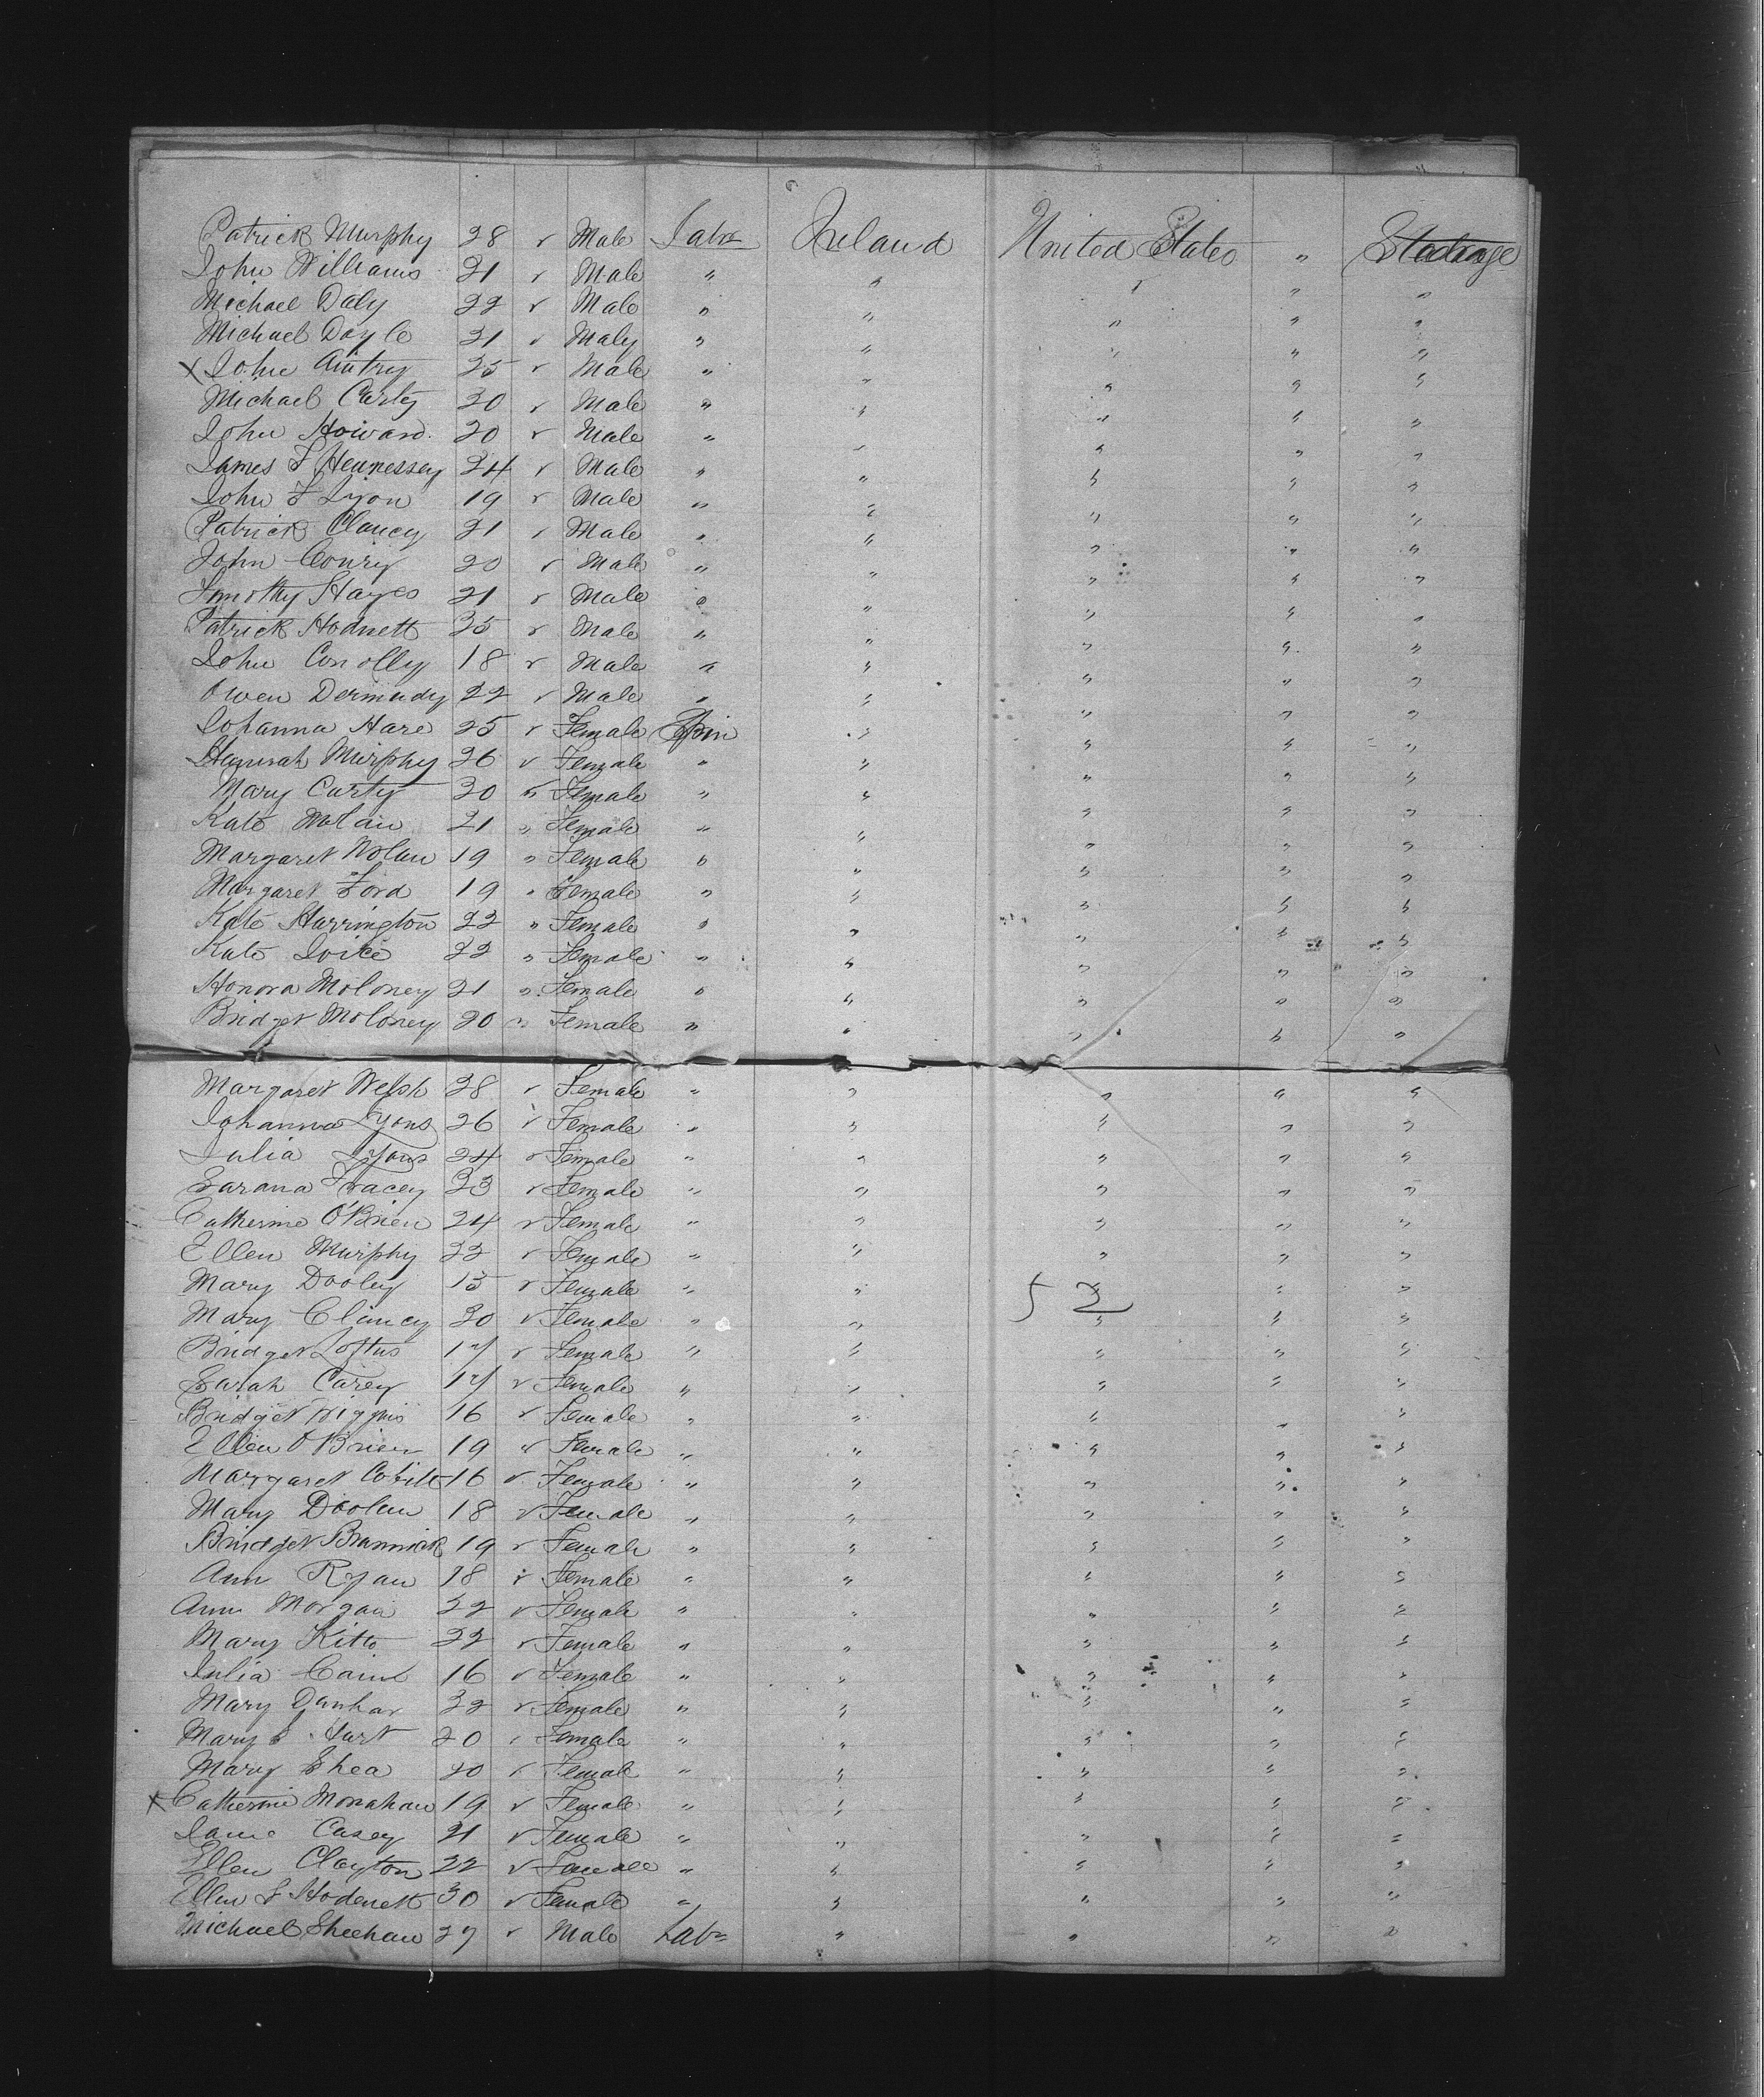 Patrick Murphy 28 " Male Labr Ireland United States " Steerage
John Williams 21 " Male " " " " "
Michael Daly 22 " Male " " " " "
Michael Doyle 21 " Maly " " " " "
X John 25 " Male " " " " "
Michael Curty 30 " Male " " " " "
John Howard 20 " Male " " " " "
James F Hennessey 24 " Male " " " " "
John F Lyon 19 " Male " " " " "
Patrick Clancy 21 " Male " " " " "
John Conry 20 " Male " " " " "
Timothy Hayes 21 " Male " " " " "
Patrick Hodnett 35 " Male " " " " "
John Conolly 18 " Male " " " " "
Owen Dermudy 22 " Male " " " " "
Johanna Hare 25 " Female Spin " " " "
Hannah Murphy 26 " Female " " " " "
Mary Curty 30 " Female " " " " "
Kate 21 " Female " " " " "
Margaret Nolan 19 " Female " " " " "
Margaret Ford 19 " Female " " " " "
Kate Harrington 22 " Female " " " " "
Kate Joice 22 " Female " " " " "
Honora Moloney 21 " Female " " " " "
Bridget Moloney 20 " Female " " " " "
Margaret Welsh 28 " Female " " " " "
Johanna Lyons 26 " Female " " " " "
Julia Lyons 24 " Female " " " " "
Tracey 23 " Female " " " " "
Catherine O'Brien 24 " Female " " " " "
Ellen Murphy 22 " Female " " " " "
Mary Dooley 15 " Female " " 52 " " "
Mary Clancy 30 " Female " " " " "
Bridget Loftus 17 " Female " " " " "
Sarah Carey 17 " Female " " " " "
Bridget Higgins 16 " Female " " " " "
Ellen O'Brien 19 " Female " " " " "
Margaret 16 " Female " " " " "
Mary Doolan 18 " Female " " " " "
Bridget Brannick 19 " Female " " " " "
Ann Ryan 18 " Female " " " " "
Ann Morgan 22 " Female " " " " "
Mary Kitto 22 " Female " " " " "
Julia Cain 16 " Female " " " " "
Mary 22 " Female " " " " "
Mary Hart 20 " Female " " " " "
Mary Shea 20 " Female " " " " "
X Catherine Monahan 19 " Female " " " " "
Jane Casey 21 " Female " " " " "
Ellen Clayton 22 " Female " " " " "
Ellen Hodenett 30 " Female " " " " "
Michael Sheehan 27 " Male Labr " " " "